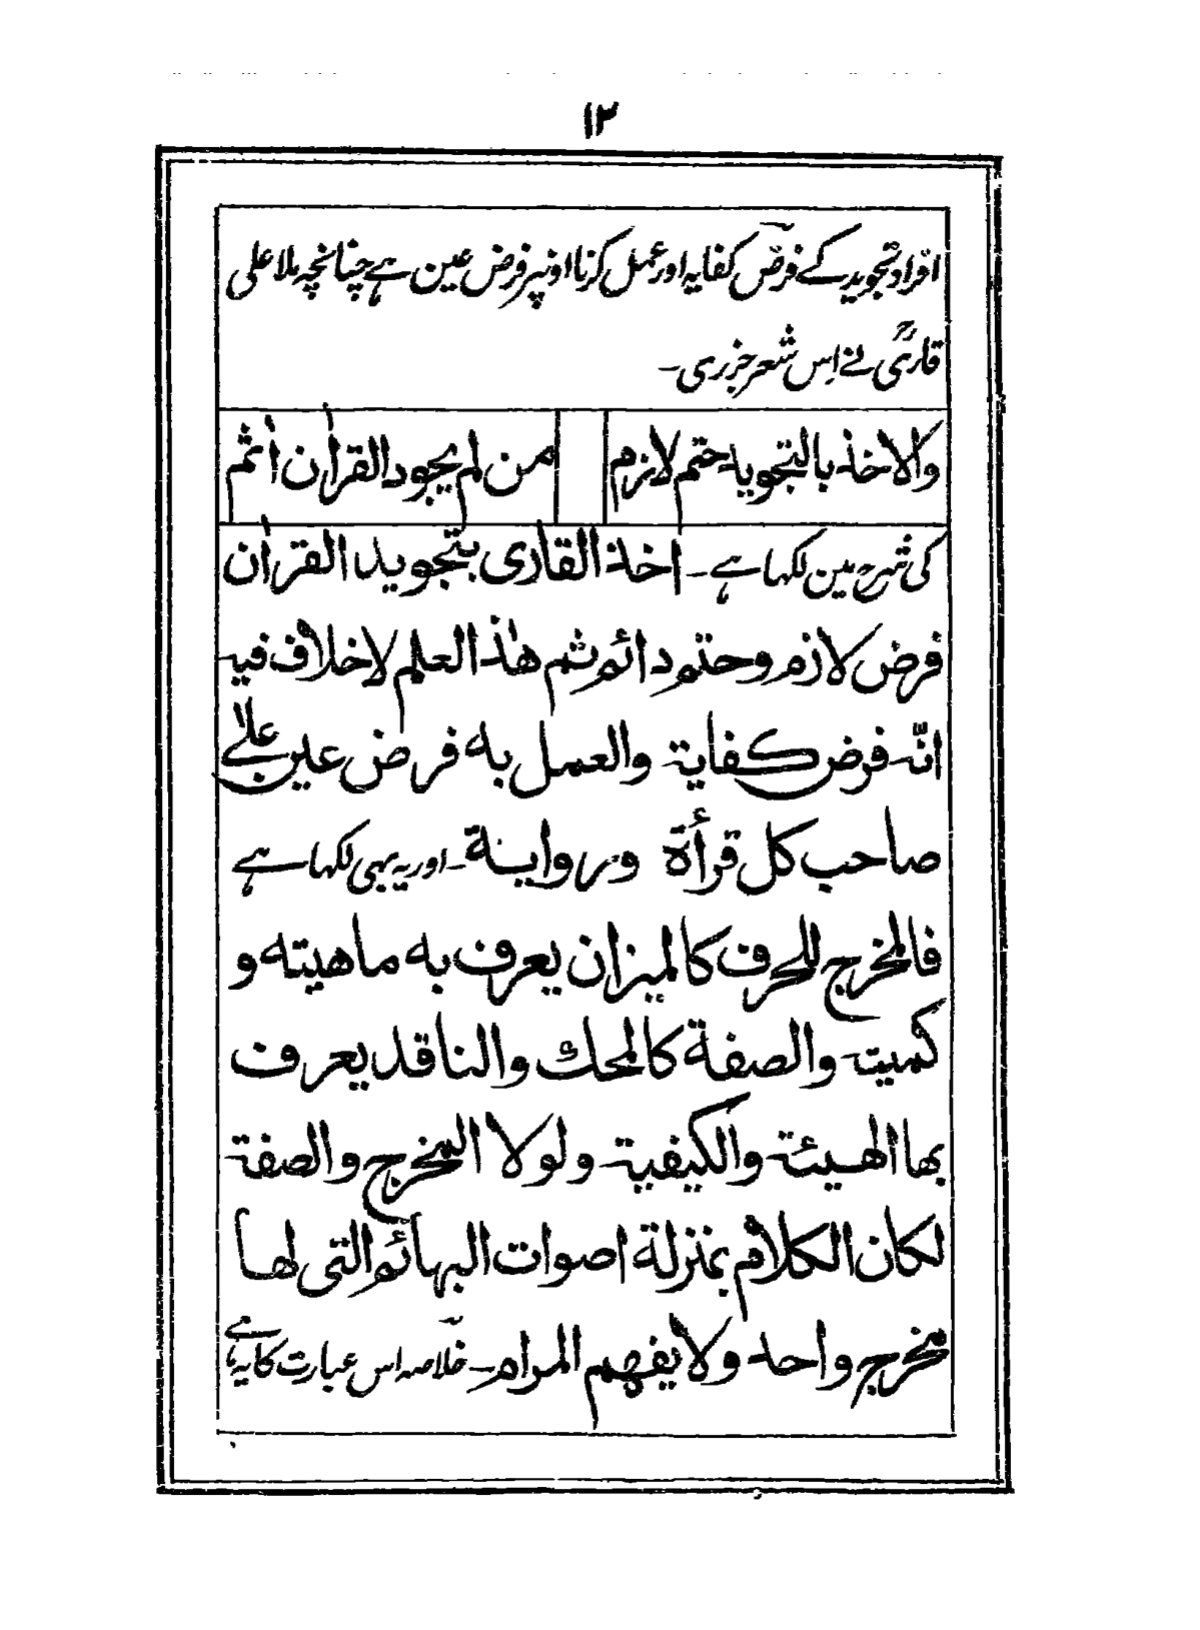 ۱۳
افراد تجوید کے فرض کفایہ اور عمل کرنا اونپر فرض عین ہے چنانچہ ملا علی
قاریؒ نے اِس شعر جزری۔
والاخذ بالتجوید حتم لازم من لم یجود القراٰن اٰثم
کی شرح مین لکہا ہے۔ اخذ القاری بتجوید القراٰن
فرض لازم وحتم دائم ثم ھٰذا العلم لاخلاف فیہ
انّہ فرض کفایۃ والعمل بہ فرض عین علےٰ
صاحب کل قرأۃ وروایۃ۔ اور یہ بہی لکہا ہے
فالمخرج للحرف کالمیزان یعرف بہ ماھیتہ و
کمیتہ والصفۃ کالمحک والناقد یعرف
بھا الھیئۃ والکیفیۃ ولولا المخرج والصفۃ
لکان الکلام بمنزلۃ اصوات البہائم التی لھا
مخرج واحد ولا یفھم المرام۔ خلاصہ اس عبارت کا یہ ہے